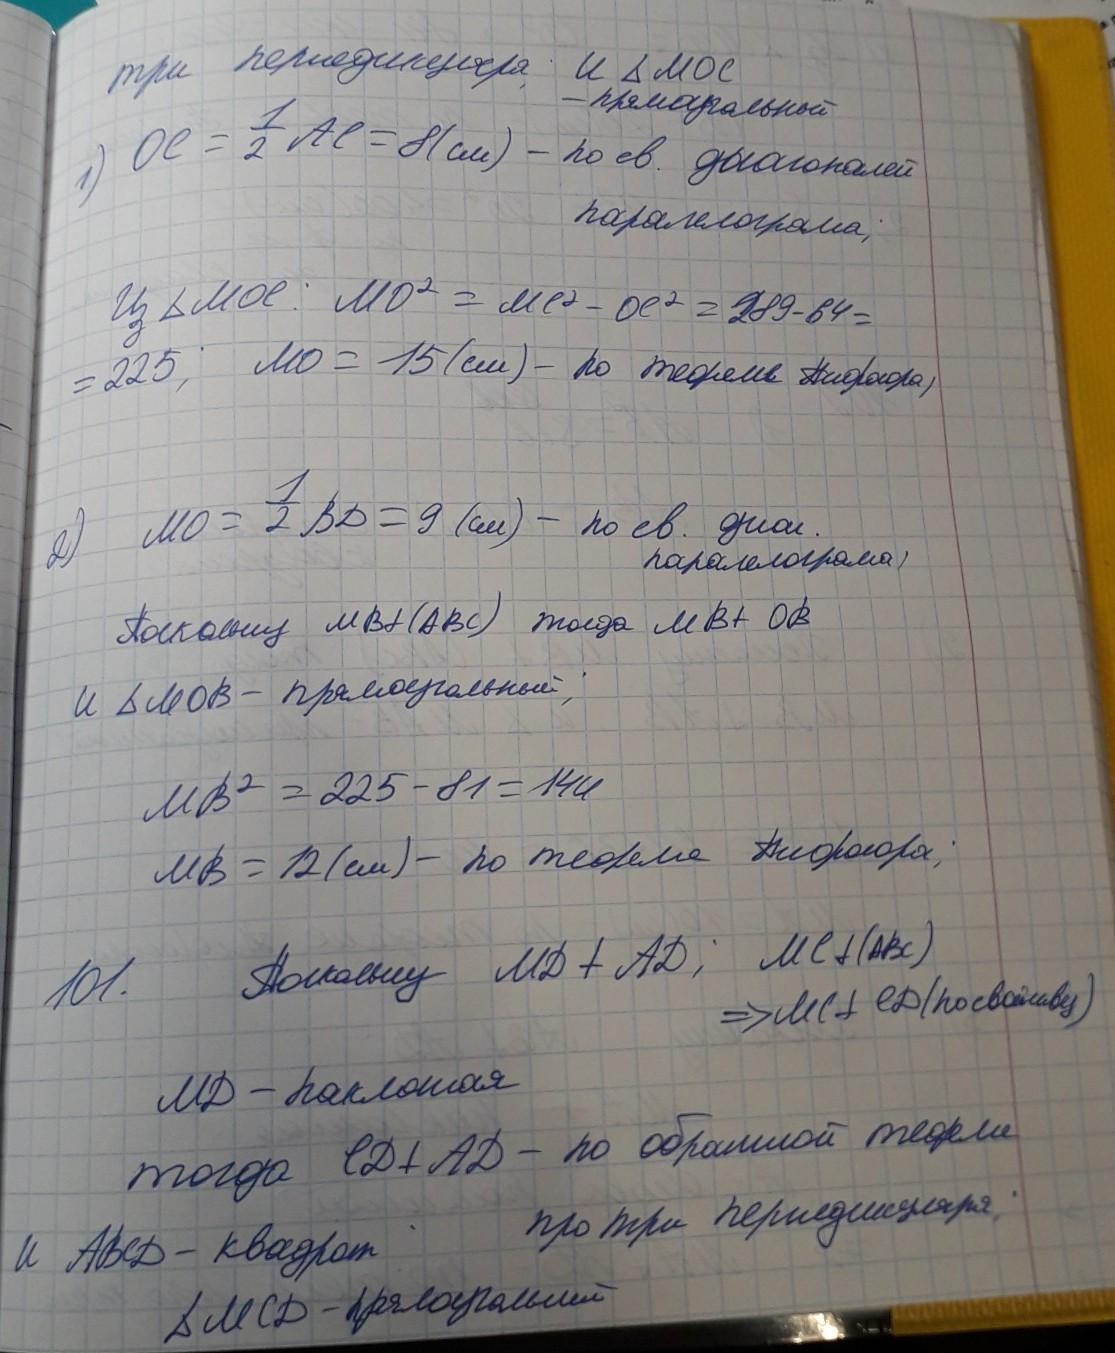 три перпедикуляра; и △MOC
– прямоугральный
1) OC = 1/2 AC = 8 (см) – по св. дыагоналей
паралелограма;
Из △MOC: MO² = MC² – OC² = 289 – 64 =
= 225; MO = 15 (см) – по теореме Пифагора;
2) MO = 1/2 BD = 9 (см) – по св. диаг.
паралелограма;
Поскольку MB⊥(ABC) тогда MB⊥ OB
и △MOB – прямоугральный;
MB² = 225 – 81 = 144
MB = 12 (см) – по теореме Пифагора;
101. Поскольку MD ⊥ AD; MC⊥(ABC)
=> MC⊥ CD (по свойству)
MD – наклонная
тогда CD⊥AD – по обратной теореме
про три перпедикуляра;
и ABCD – квадрат
△MCD – прямоугральний